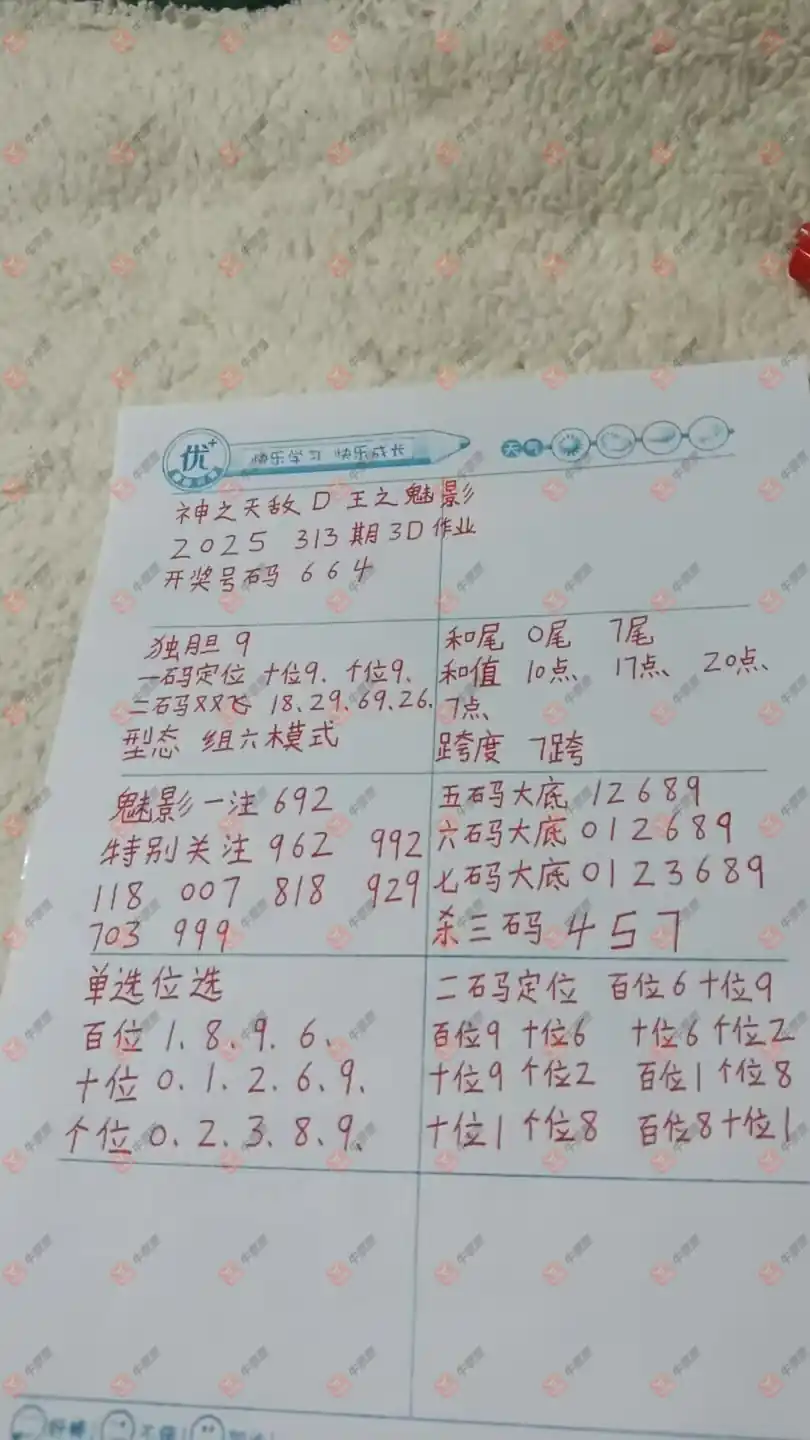 优+
快乐学习 快乐成长
天气
神之天敌 D 王之魅影
2025 313期3D作业
开奖号码 664
独胆 9
一码定位 十位9、个位9、
二码双飞 18、29、69、26、
型态 组六模式
和尾 0尾 7尾
和值 10点、 17点、 20点、
7点、
跨度 7跨
魅影一注 692
特别关注 962 992
118 007 818 929
703 999
五码大底 12689
六码大底 012689
七码大底 0123689
杀三码 457
单选位选
百位 1、8、9、6、
十位 0、1、2、6、9、
个位 0、2、3、8、9、
二码定位 百位6十位9
百位9 十位6 十位6个位2
十位9 个位2 百位1个位8
十位1 个位8 百位8十位1